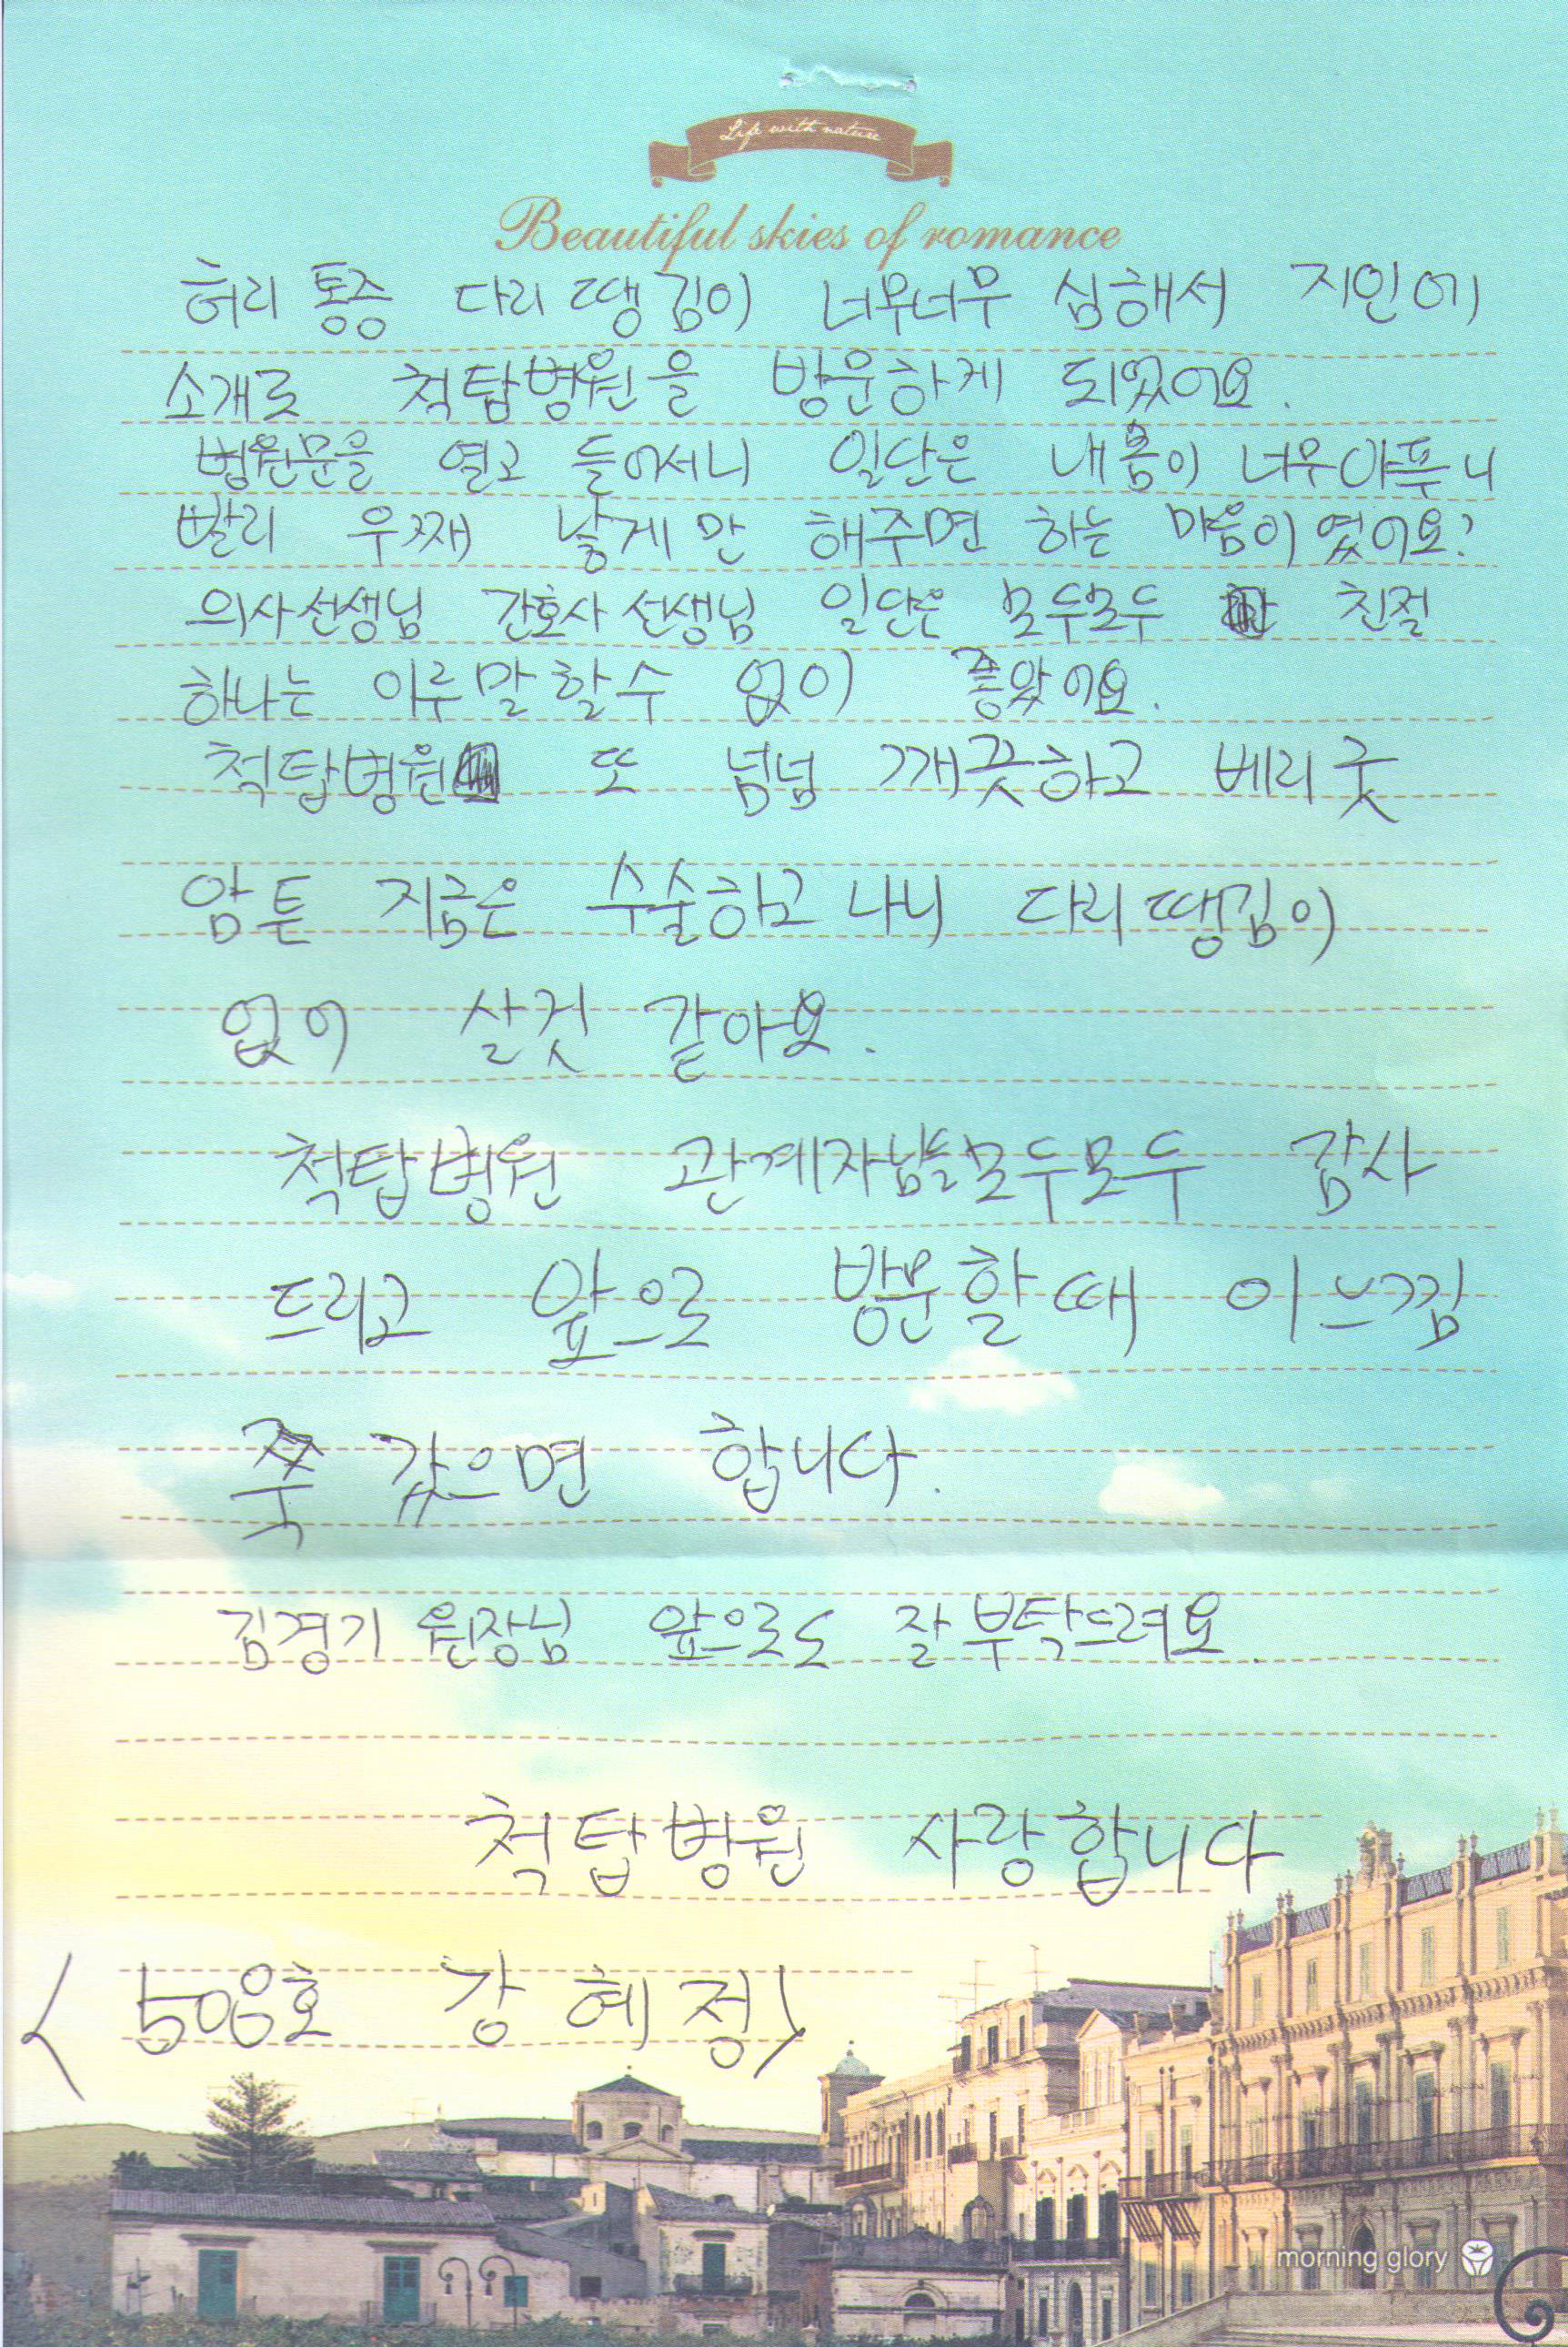 Life with nature
Beautiful skies of romance
허리 통증 다리 땡김이 너무너무 심해서 지인에
소개로 척탑병원을 방문하게 되었어요.
병원문을 열고 들어서니 일단은 내 몸이 너무아푸니
빨리 우째 낳게만 해주면 하는 마음이였어요?
의사선생님 간호사선생님 일단은 모두모두 친절
하나는 이루말할수 없이 좋았어요.
척탑병원 또 넘넘 깨끗하고 베리굿
암튼 지금은 수술하고 나니 다리땡김이
없어 살것 같아요.
척탑병원 관계자님들모두모두 감사
드리고 앞으로 방문할때 이느낌
쭉 갔으면 합니다.
김경기 원장님 앞으로도 잘부탁드려요.
척탑병원 사랑합니다
<508호 강혜정>
morning glory